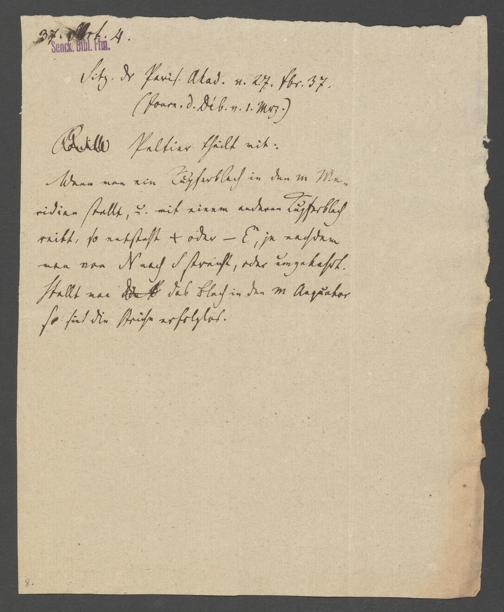 37. Mrk. 4.
Senck. Bibl. Ffm.
Sitz. dr Paris. Akad. v. 27. Fbr. 37.
(Journ. d. Déb. v. 1. Mrz.)
Peltier theilt mit:
Wenn man ein Kupferblech in den m Me-
ridian stellt, u. mit einem anderen Kupferblech
reibt, so entsteht + oder — E, je nachdem
man von N nach S streicht, oder umgekehrt.
Stellt man das Blech in den m Aequator
so sind die Striche erfolglos.
8.